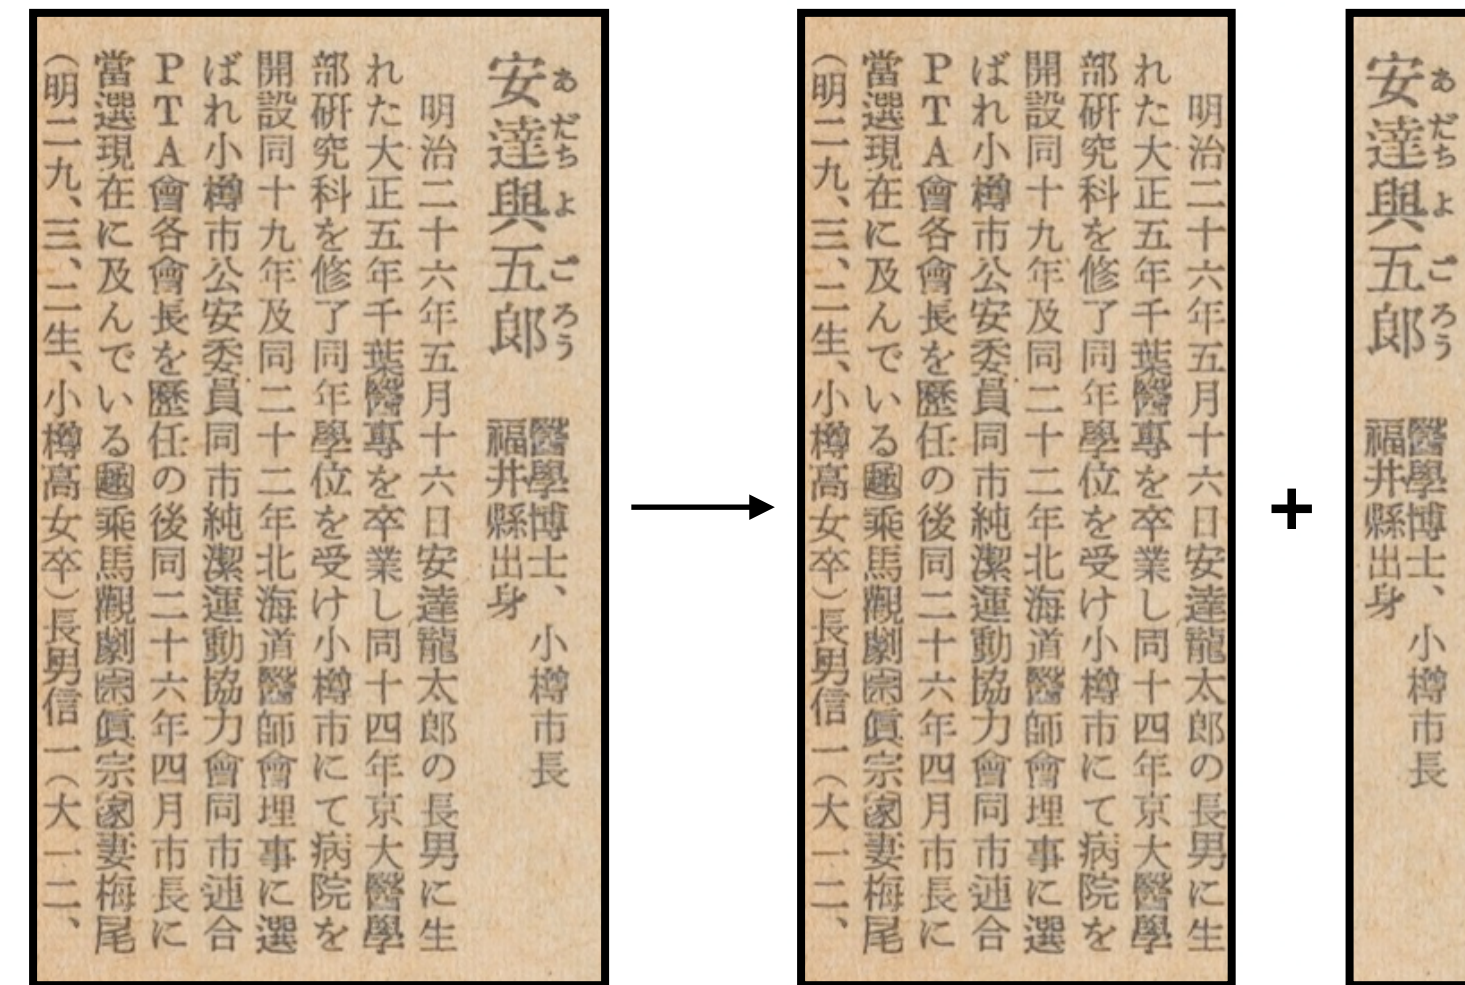 あだちよごろう
安達與五郎
醫學博士、小樽市長
福井縣出身
明治二十六年五月十六日安達龍太郎の長男に生
れた大正五年千葉醫專を卒業し同十四年京大醫學
部硏究科を修了同年學位を受け小樽市にて病院を
開設同十九年及同二十二年北海道醫師會理事に選
ばれ小樽市公安委員同市純潔運動協力會同市連合
PTA會各會長を歷任の後同二十六年四月市長に
當選現在に及んでいる趣乘馬觀劇宗眞宗家妻梅尾
(明二九、三、二生、小樽高女卒)長男信一(大一二、
→
明治二十六年五月十六日安達龍太郎の長男に生
れた大正五年千葉醫專を卒業し同十四年京大醫學
部硏究科を修了同年學位を受け小樽市にて病院を
開設同十九年及同二十二年北海道醫師會理事に選
ばれ小樽市公安委員同市純潔運動協力會同市連合
PTA會各會長を歷任の後同二十六年四月市長に
當選現在に及んでいる趣乘馬觀劇宗眞宗家妻梅尾
(明二九、三、二生、小樽高女卒)長男信一(大一二、
+
あだちよごろう
安達與五郎
醫學博士、小樽市長
福井縣出身